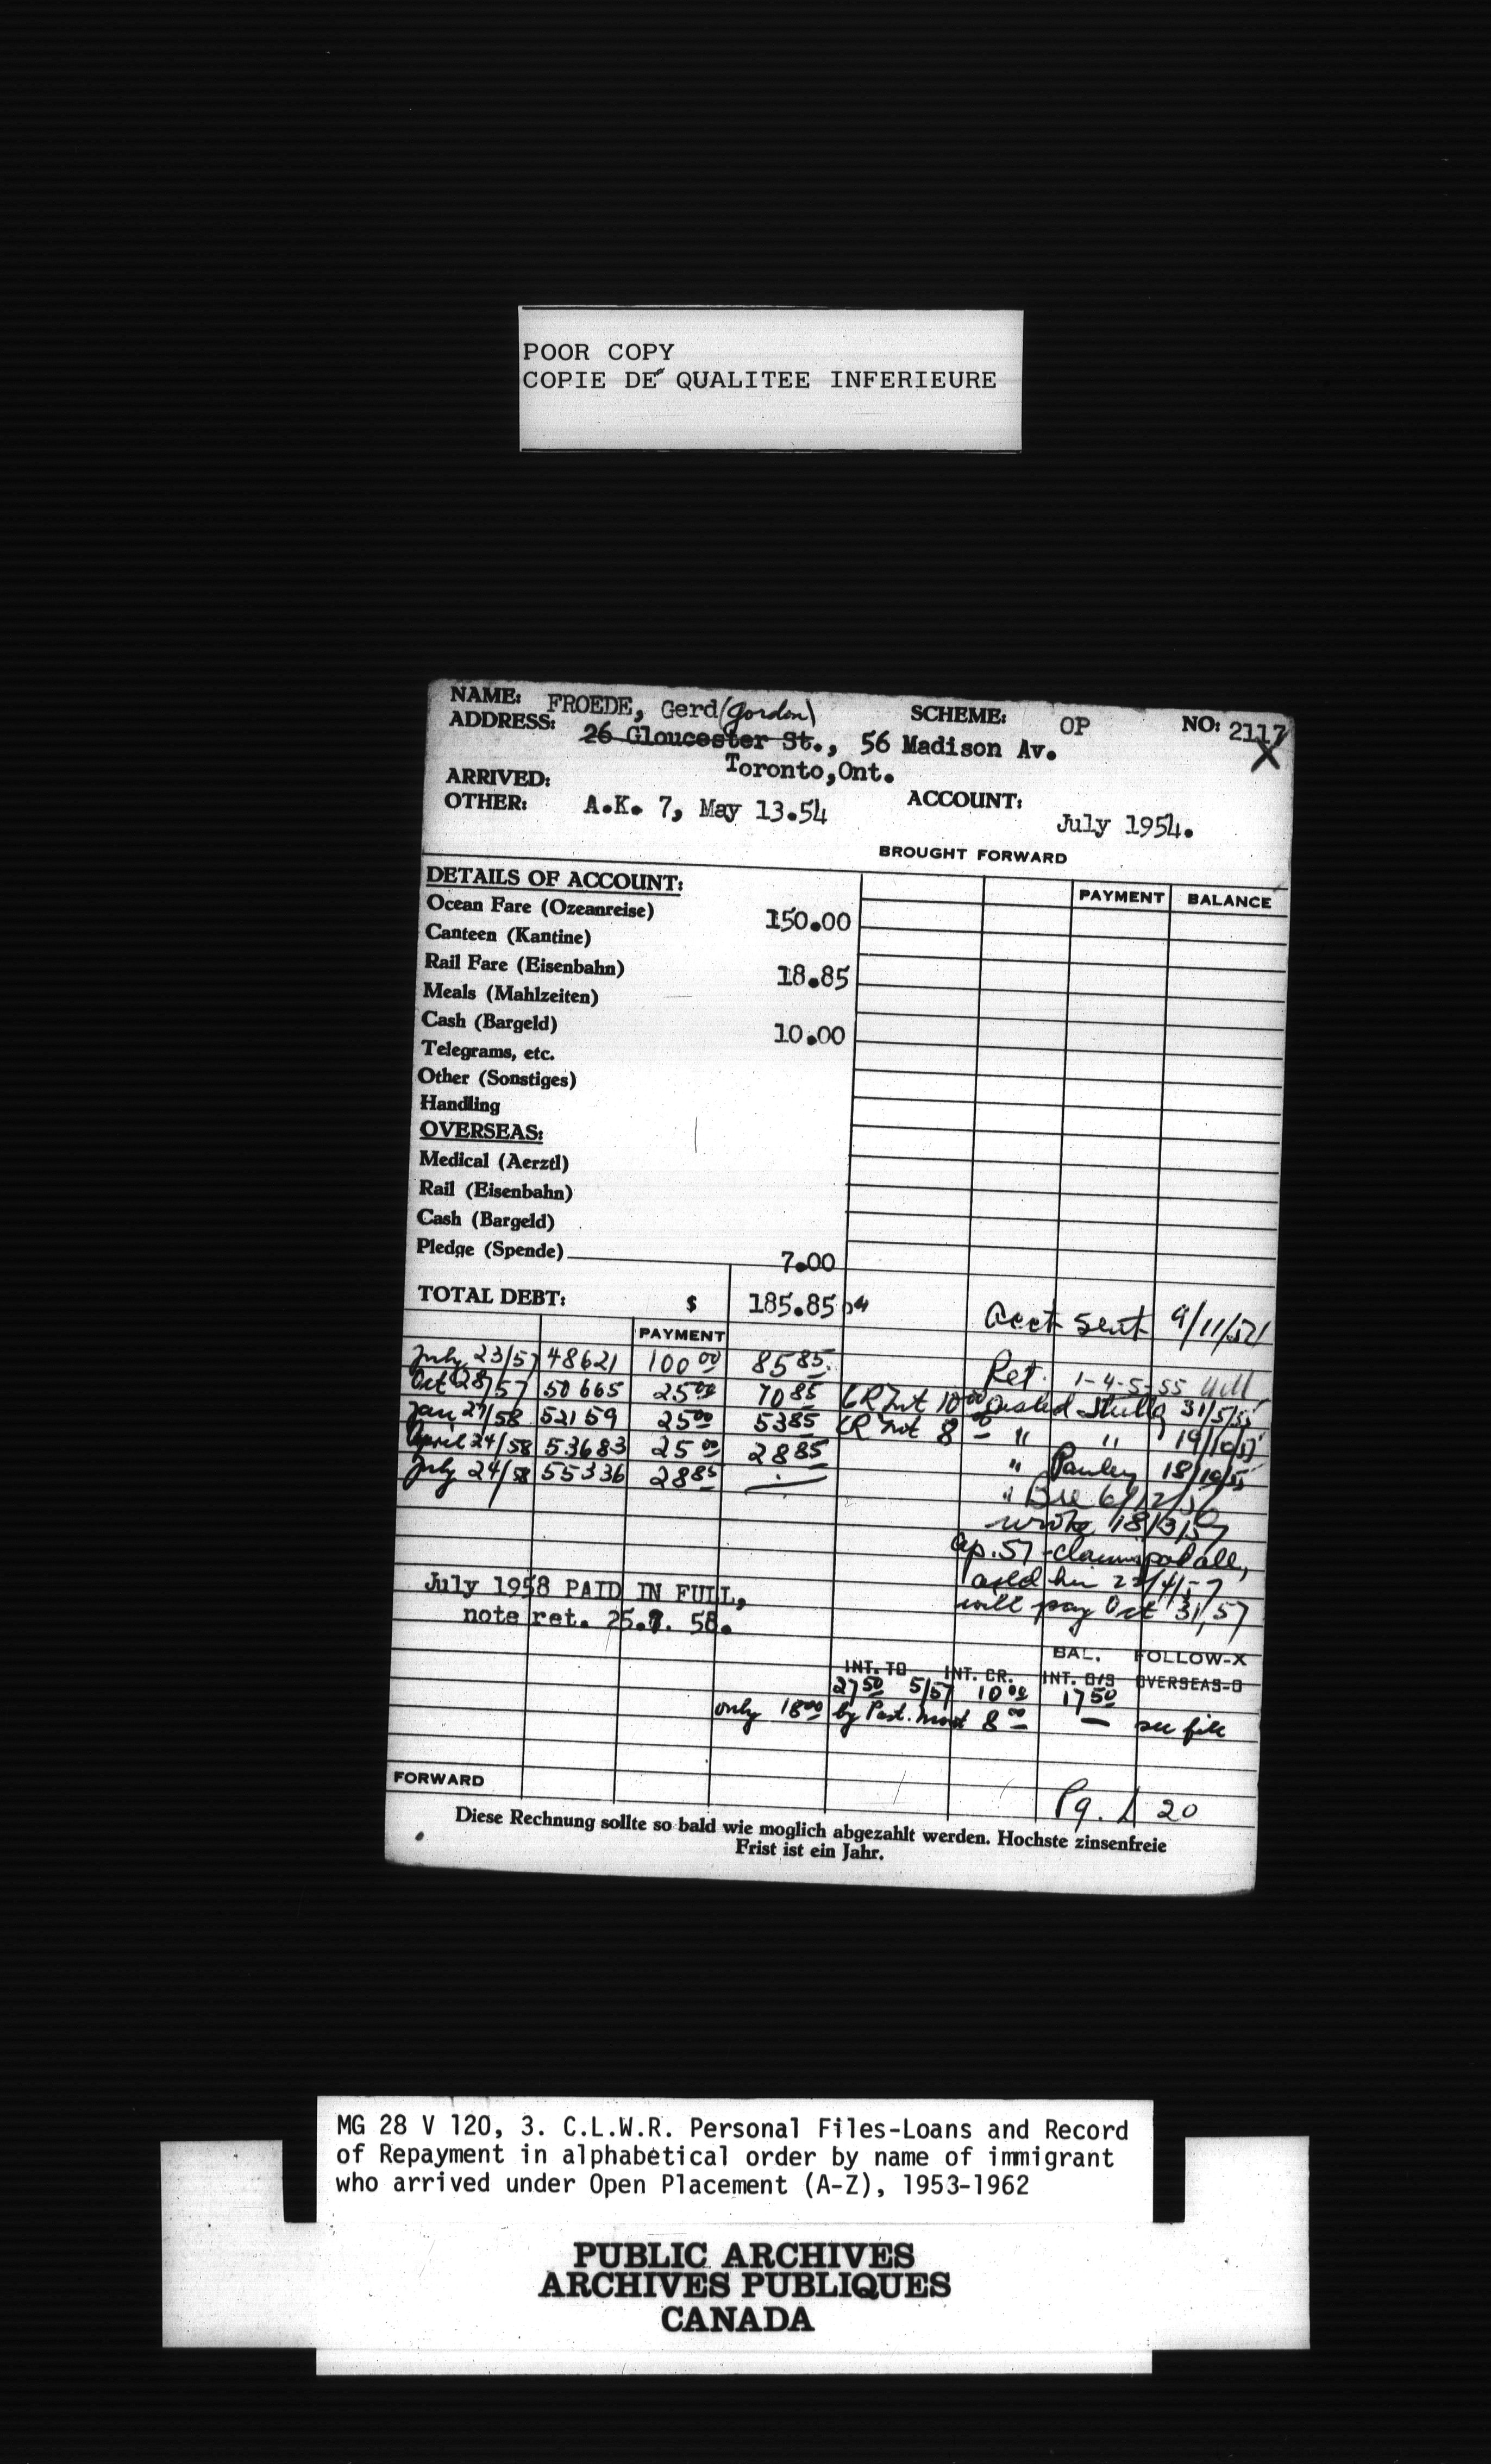 POOR COPY
COPIE DE QUALITEE INFERIEURE
NAME: FROEDE, Gerd (Gordon) SCHEME: OP NO: 2117 X
ADDRESS: 26 Gloucester St., 56 Madison Av.
Toronto, Ont.
ARRIVED:
OTHER: A.K. 7, May 13.54 ACCOUNT: July 1954.
BROUGHT FORWARD
DETAILS OF ACCOUNT: PAYMENT BALANCE
Ocean Fare (Ozeanreise) 150.00
Canteen (Kantine)
Rail Fare (Eisenbahn) 18.85
Meals (Mahlzeiten)
Cash (Bargeld) 10.00
Telegrams, etc.
Other (Sonstiges)
Handling
OVERSEAS:
Medical (Aerztl)
Rail (Eisenbahn)
Cash (Bargeld)
Pledge (Spende) 7.00
TOTAL DEBT: $ 185.85 Acct sent 9/11/54
PAYMENT
July 23/57 48621 100 00 85 85 Ret. 1-4-5-55
Oct 28/57 50665 25 00 70 85 CR Int 10 00 asked 31/5/55
Jan 27/58 52159 25 00 53 85 CR Int 8 00 " "
April 24/58 53683 25 00 28 85 " Pauley
July 24/58 55336 28 85 —
wrote 18/3/57
Ap. 57 - claims pd all,
told him 4/57
July 1958 PAID IN FULL, will pay Oct 31, 57
note ret. 25.7. 58.
BAL. FOLLOW-X
INT. TO INT. CR. INT. O/S OVERSEAS-O
27 50 5/57 10 00 17 50
only 18 00 by Past. 8 00 — see file
FORWARD
Pg. 20
Diese Rechnung sollte so bald wie moglich abgezahlt werden. Hochste zinsenfreie
Frist ist ein Jahr.
MG 28 V 120, 3. C.L.W.R. Personal Files-Loans and Record
of Repayment in alphabetical order by name of immigrant
who arrived under Open Placement (A-Z), 1953-1962
PUBLIC ARCHIVES
ARCHIVES PUBLIQUES
CANADA